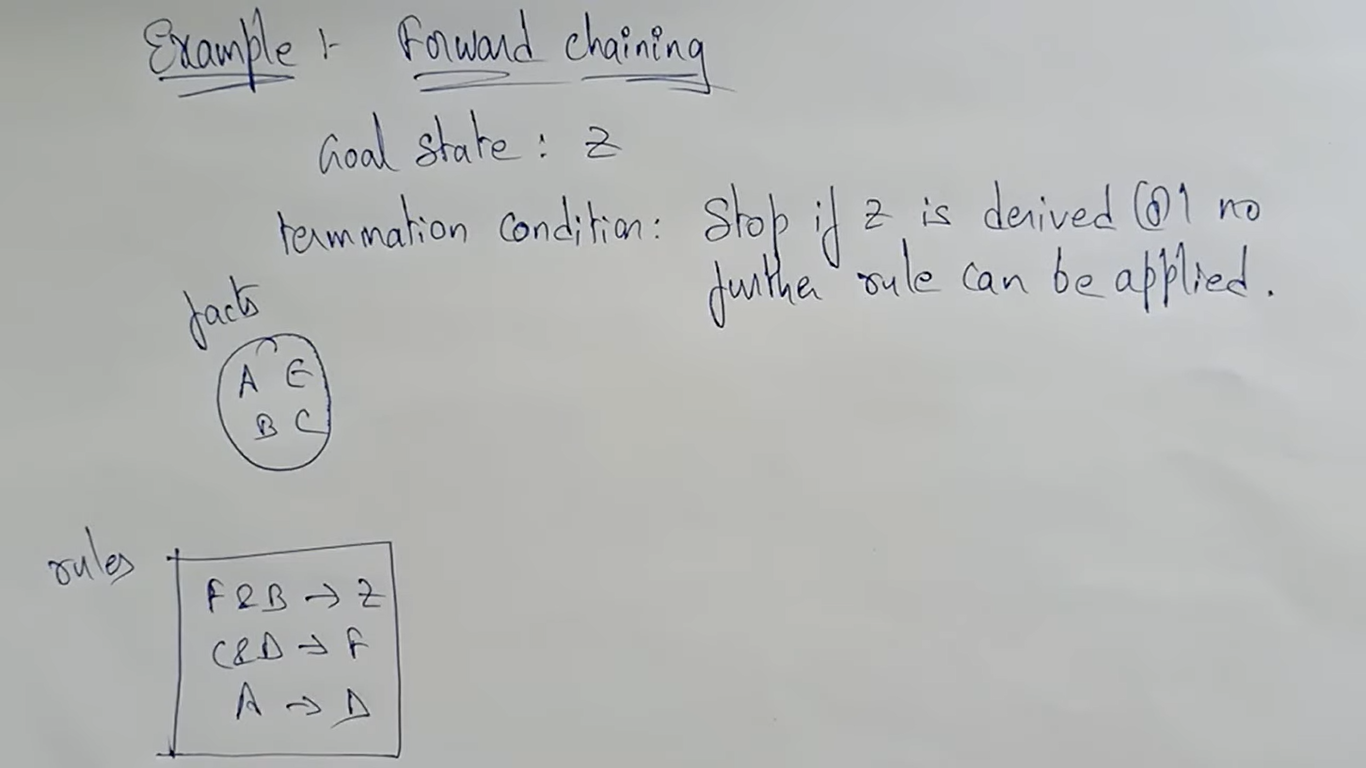 Example :- Forward chaining
Goal state : Z
termination condition: Stop if Z is derived (or) no
further rule can be applied.
facts
A E
B C
rules
F & B → Z
C & D → F
A → D